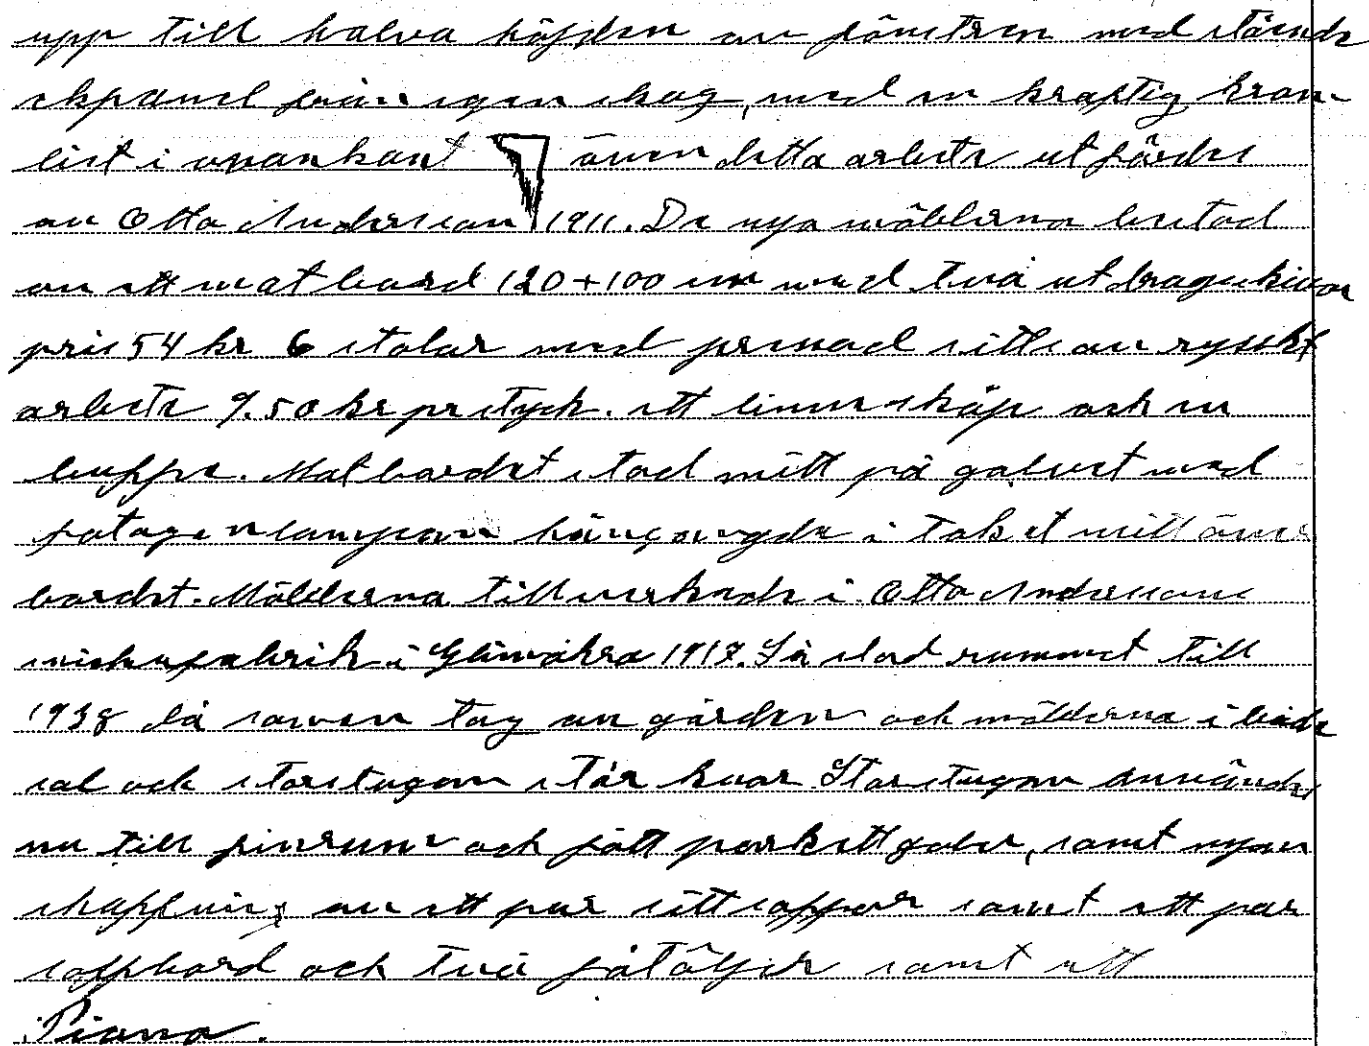 upp till halva höjden av fönstren med stående
ekpanel från egen skog, med en kraftig kran-
list i ovankant även detta arbete utfördes
av Otto Andersson 1911. De nya möblerna bestod
av ett matbord 120+100 cm med två utdragsskivor
pris 54 kr 6 stolar med pressad sits av ryskt
arbete 9.50 kr pr styck. ett linneskåp och en
buffe. Matbordet stod mitt på golvet med
fotogenlampan hängande i taket mitt över
bordet. Möblerna tillverkade i Otto Anderssons
snickufabrik i Glimåkra 1912. Så stod rummet till
1938 då sonen tog av gården och möblerna i både
sal och storstugan står kvar. Storstugan används
nu till finrum och fått parkettgolv, samt nyan-
skaffning av ett par sittsoffor samt ett par
soffbord och två fåtöljer samt ett
Piano.